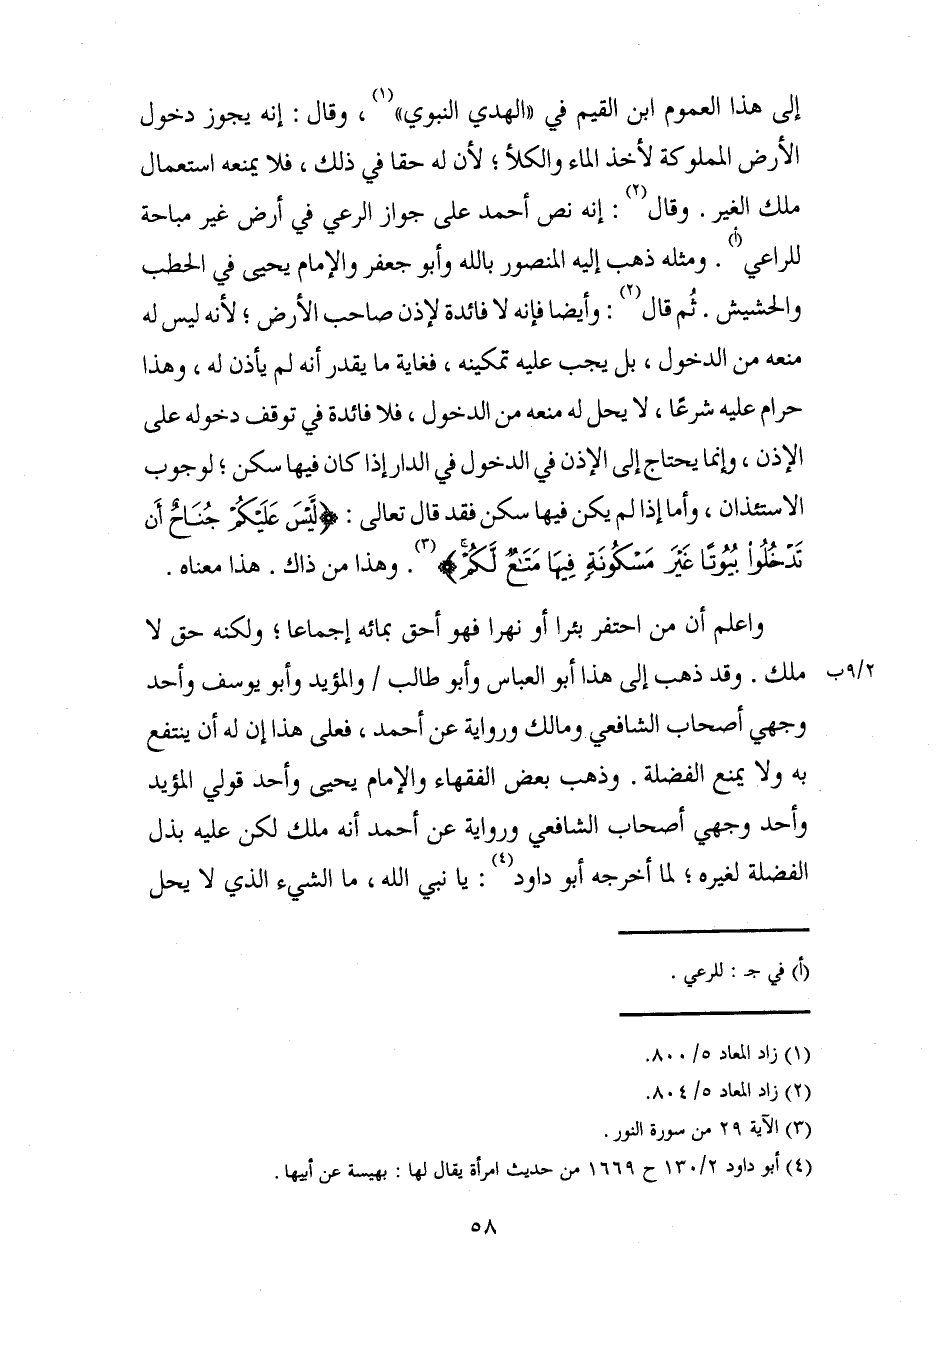 إلى هذا العموم ابن القيم في «الهدي النبوي»(١) ، وقال : إنه يجوز دخول
الأرض المملوكة لأخذ الماء والكلأ ؛ لأن له حقا في ذلك ، فلا يمنعه استعمال
ملك الغير . وقال(٢) : إنه نص أحمد على جواز الرعي في أرض غير مباحة
للراعي(أ) . ومثله ذهب إليه المنصور بالله وأبو جعفر والإمام يحيى في الحطب
والحشيش . ثُم قال(٢) : وأيضا فإنه لا فائدة لإذن صاحب الأرض ؛ لأنه ليس له
منعه من الدخول ، بل يجب عليه تمكينه ، فغاية ما يقدر أنه لم يأذن له ، وهذا
حرام عليه شرعًا ، لا يحل له منعه من الدخول ، فلا فائدة في توقف دخوله على
الإذن ، وإنما يحتاج إلى الإذن في الدخول في الدار إذا كان فيها سكن ؛ لوجوب
الاستئذان ، وأما إذا لم يكن فيها سكن فقد قال تعالى : ﴿لَّيْسَ عَلَيْكُمْ جُنَاحٌ أَن
تَدْخُلُوا۟ بُيُوتًا غَيْرَ مَسْكُونَةٍ فِيهَا مَتَـٰعٌ لَّكُمْ ۚ﴾(٣) . وهذا من ذاك . هذا معناه .
واعلم أن من احتفر بئرا أو نهرا فهو أحق بمائه إجماعا ؛ ولكنه حق لا
٩/٢ب ملك . وقد ذهب إلى هذا أبو العباس وأبو طالب / والمؤيد وأبو يوسف وأحد
وجهي أصحاب الشافعي ومالك ورواية عن أحمد ، فعلى هذا إن له أن ينتفع
به ولا يمنع الفضلة . وذهب بعض الفقهاء والإمام يحيى وأحد قولي المؤيد
وأحد وجهي أصحاب الشافعي ورواية عن أحمد أنه ملك لكن عليه بذل
الفضلة لغيره ؛ لما أخرجه أبو داود(٤) : يا نبي الله ، ما الشيء الذي لا يحل
(أ) في جـ : للرعي .
(١) زاد المعاد ٥/ ٨٠٠.
(٢) زاد المعاد ٥/ ٨٠٤.
(٣) الآية ٢٩ من سورة النور .
(٤) أبو داود ١٣٠/٢ ح ١٦٦٩ من حديث امرأة يقال لها : بهيسة عن أبيها .
٥٨